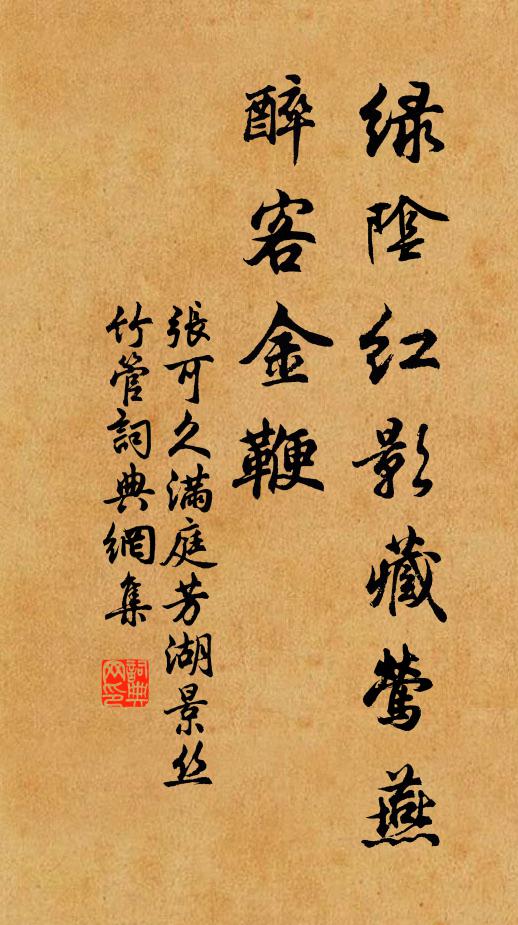 绿陰红影藏莺燕
醉客金鞭
張可久满庭芳湖景丝
竹管詞典網集
詞典
网印